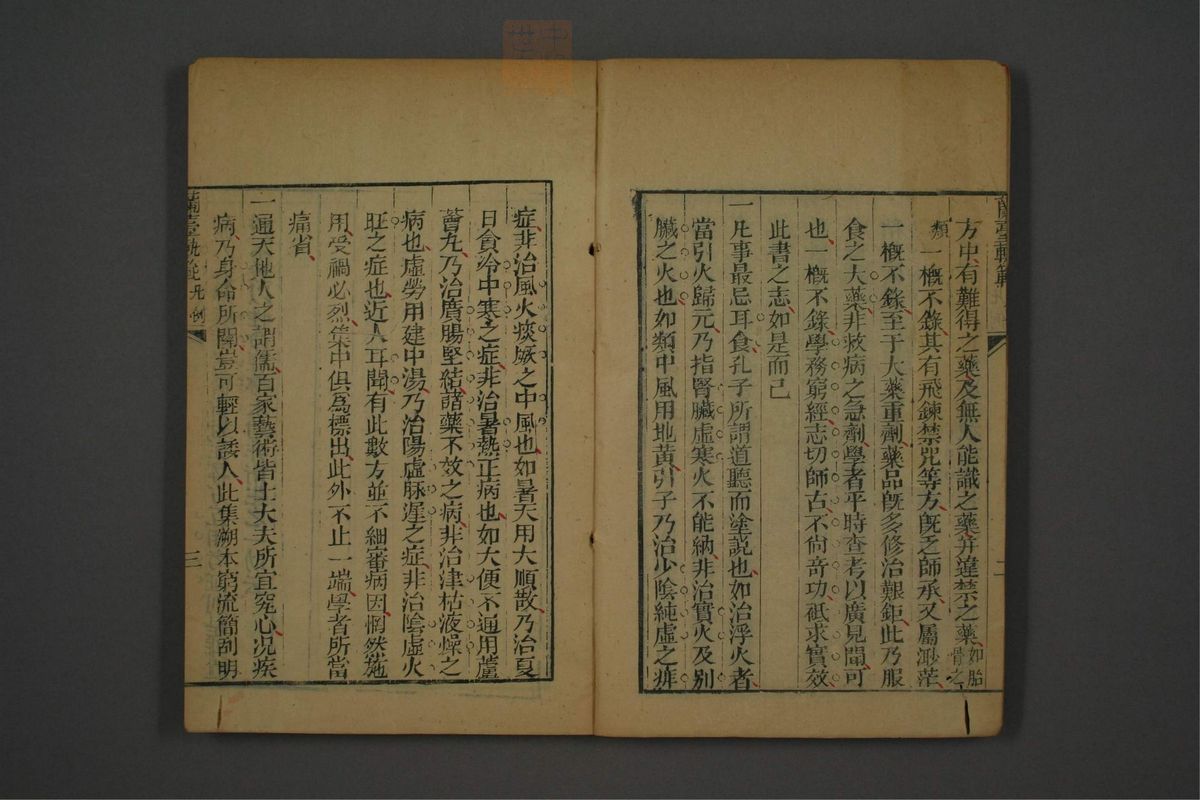 蘭臺軌範
方中有難得之藥及無人能識之藥并違禁之藥如胎骨之
類一概不錄其有飛鍊禁咒等方旣乏師承又屬渺茫
一概不錄至于大藥重劑藥品旣多修治艱鉅此乃服
食之大藥非救病之急劑學者平時查考以廣見聞可
也一概不錄學務窮經志切師古不尙奇功祗求實效
此書之志如是而已
一凡事最忌耳食孔子所謂道聽而塗說也如治浮火者
當引火歸元乃指腎臟虛寒火不能納非治實火及別
臟之火也如類中風用地黃引子乃治少陰純虛之痱
二
症非治風火痰厥之中風也如暑天用大順散乃治夏
日食冷中寒之症非治暑熱正病也如大便不通用蘆
薈丸乃治廣腸堅結諸藥不效之病非治津枯液燥之
病也虛勞用建中湯乃治陽虛脉遲之症非治陰虛火
旺之症也近人耳聞有此數方並不細審病因惘然施
用受禍必烈集中俱爲標出此外不止一端學者所當
痛省
一通天地人之謂儒百家藝術皆士大夫所宜究心况疾
病乃身命所關豈可輕以誤人此集溯本窮流簡剖明
蘭臺軌範 凡例
三